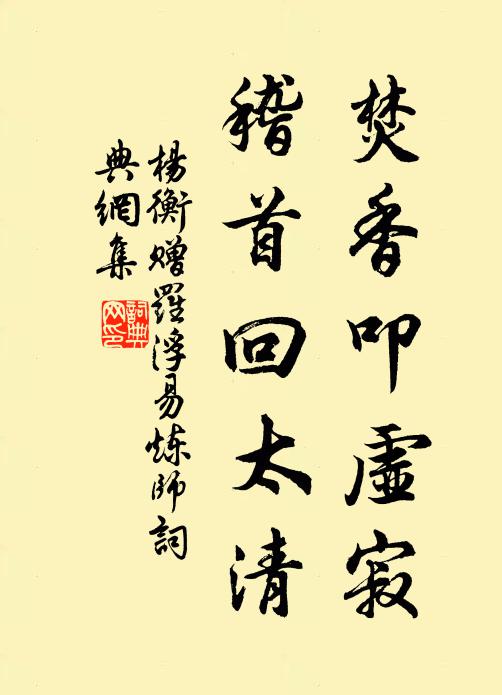 焚香叩虛寂
稽首回太清
楊衡贈羅浮易煉師詞
典網集
詞典
网印